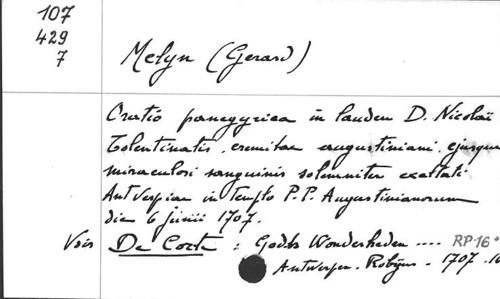 107
429
7
Melyn (Gerard)
Oratio panegyrica in laudem D. Nicolaï
Tolentinatis, eremitae augustiniani, ejusque
miraculosi sanguinis solemniter exaltati
Antverpiae in templo P.P. Augustinianorum
die 6 junii 1707.
Vois De Coste : Godts Wonderheden .... RP-16°
Antwerpen - Robijns - 1707 -